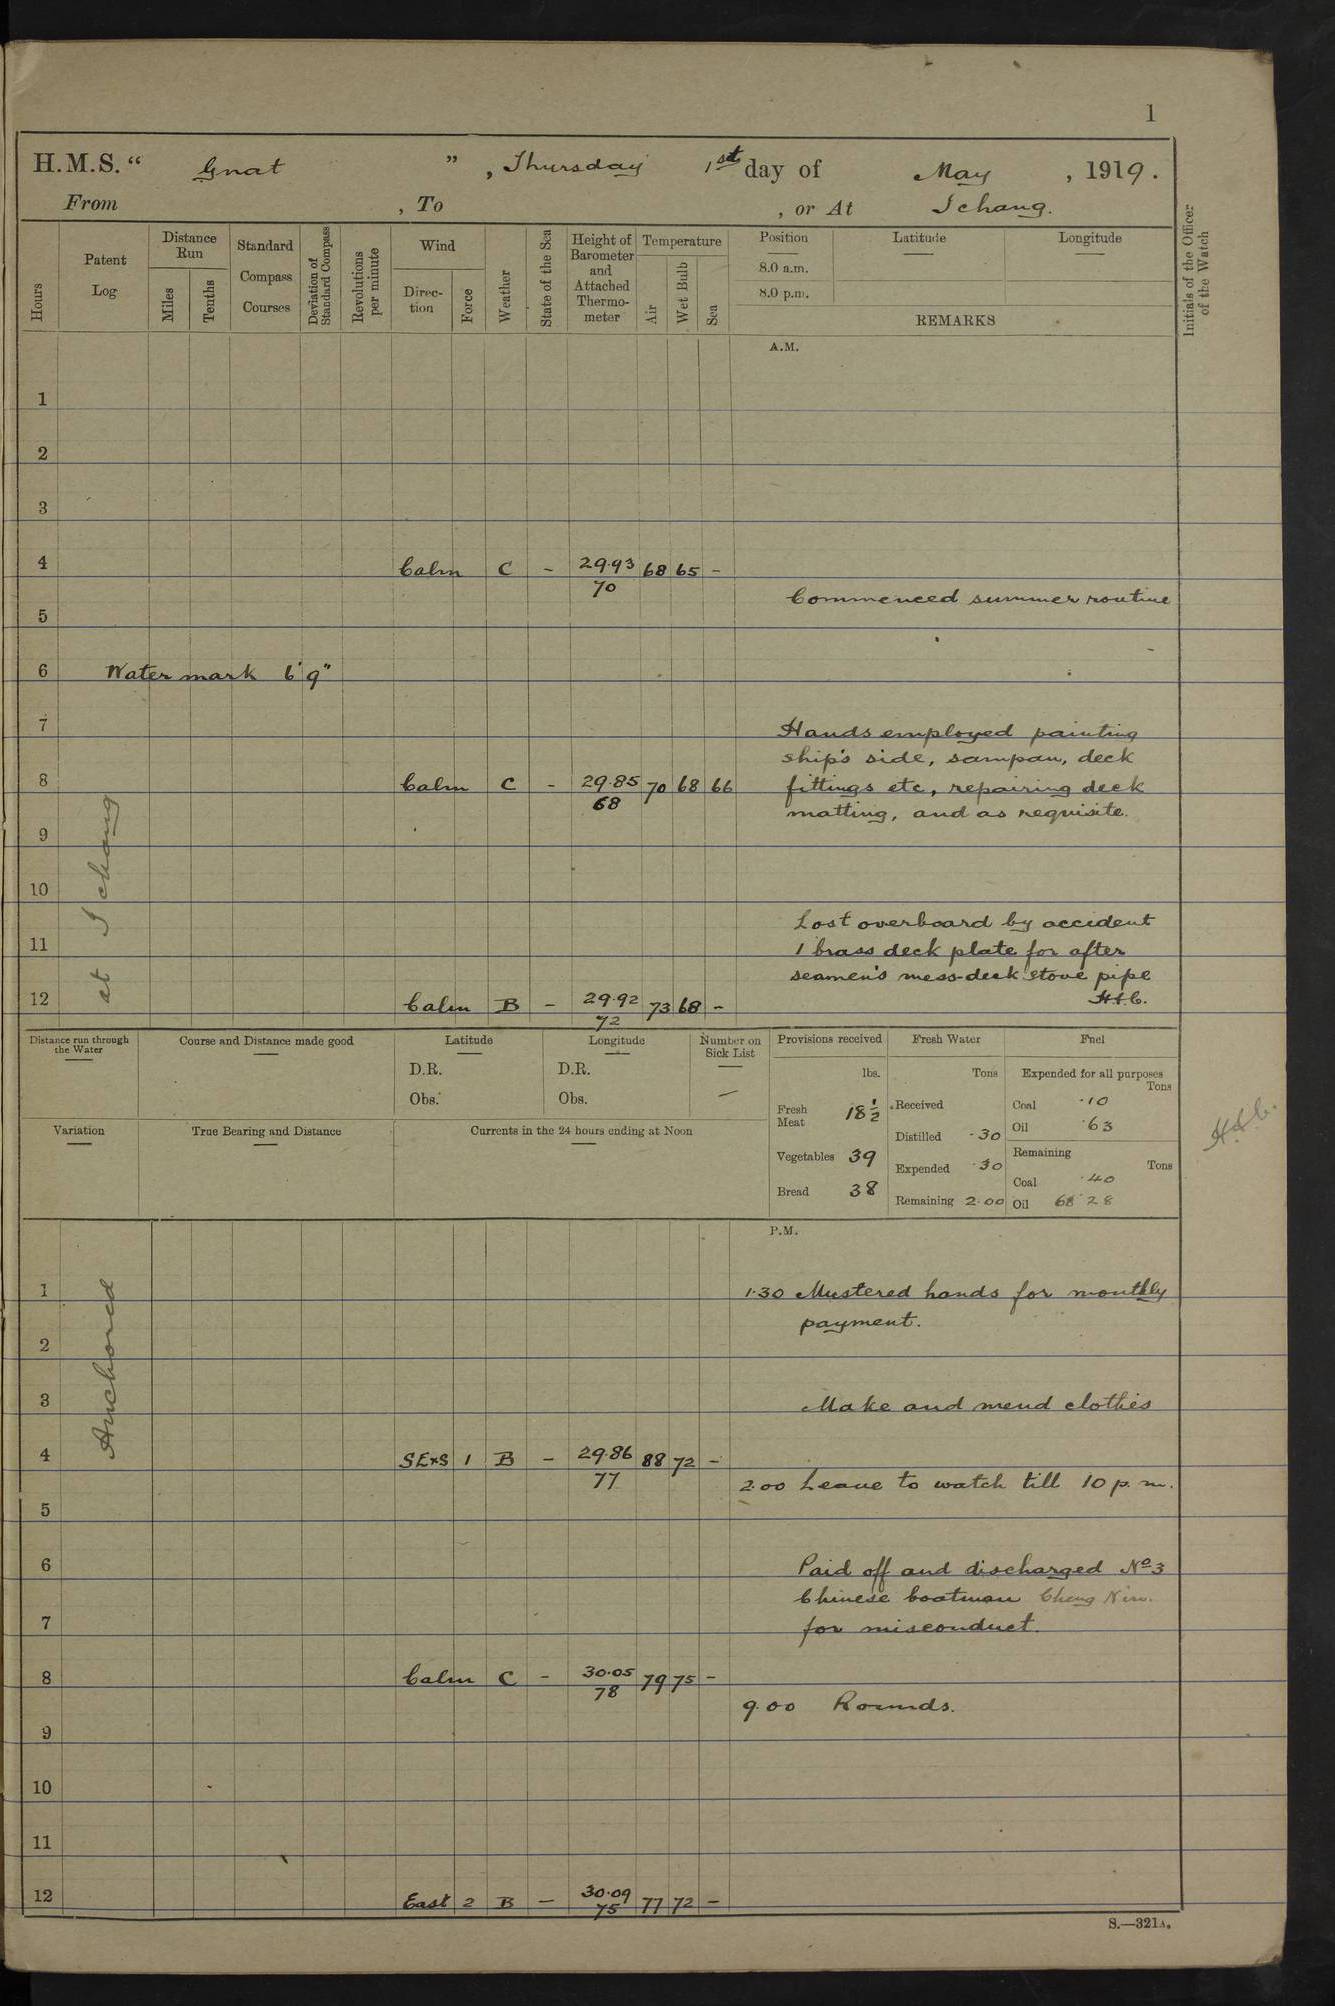 1
H.M.S. “ Gnat ”, Thursday 1st day of May, 1919.
From , To , or At Ichang.
Hours
Patent Log
Distance Run
Miles
Tenths
Standard Compass Courses
Deviation of Standard Compass
Revolutions per minute
Wind
Direction
Force
Weather
State of the Sea
Height of Barometer and Attached Thermometer
Temperature
Air
Wet Bulb
Sea
Position
8.0 a.m.
8.0 p.m.
Latitude
Longitude
REMARKS
Initials of the Officer of the Watch
A.M.
1
2
3
4 Calm C - 29.93 68 65 -
70
Commenced summer routine
5
6 Water mark 6' 9"
7 Hands employed painting
ship's side, sampan, deck
8 Calm C - 29.85 70 68 66 fittings etc, repairing deck
68
matting, and as requisite.
9
10
Lost overboard by accident
11 1 brass deck plate for after
seamen's mess-deck stove pipe
12 Calm B - 29.92 73 68 -
72
at Ichang
Distance run through the Water
Course and Distance made good
Latitude
D.R.
Obs.
Longitude
D.R.
Obs.
Number on Sick List
—
Provisions received
lbs.
Fresh Meat 18 1/2
Vegetables 39
Bread 38
Fresh Water
Tons
Received
Distilled .30
Expended .30
Remaining 2.00
Fuel
Expended for all purposes
Tons
Coal .10
Oil .63
Remaining
Tons
Coal .40
Oil 68.28
Variation
True Bearing and Distance
Currents in the 24 hours ending at Noon
P.M.
1 1.30 Mustered hands for monthly
payment.
2
3 Make and mend clothes
4 SExS 1 B - 29.86 88 72 -
77
2.00 Leave to watch till 10 p.m.
5
6 Paid off and discharged No 3
Chinese boatman Cheng
7 for misconduct.
8 Calm C - 30.05 79 75 -
78
9.00 Rounds.
9
10
11
12 East 2 B - 30.09 77 72 -
75
Anchored
S.—321A.